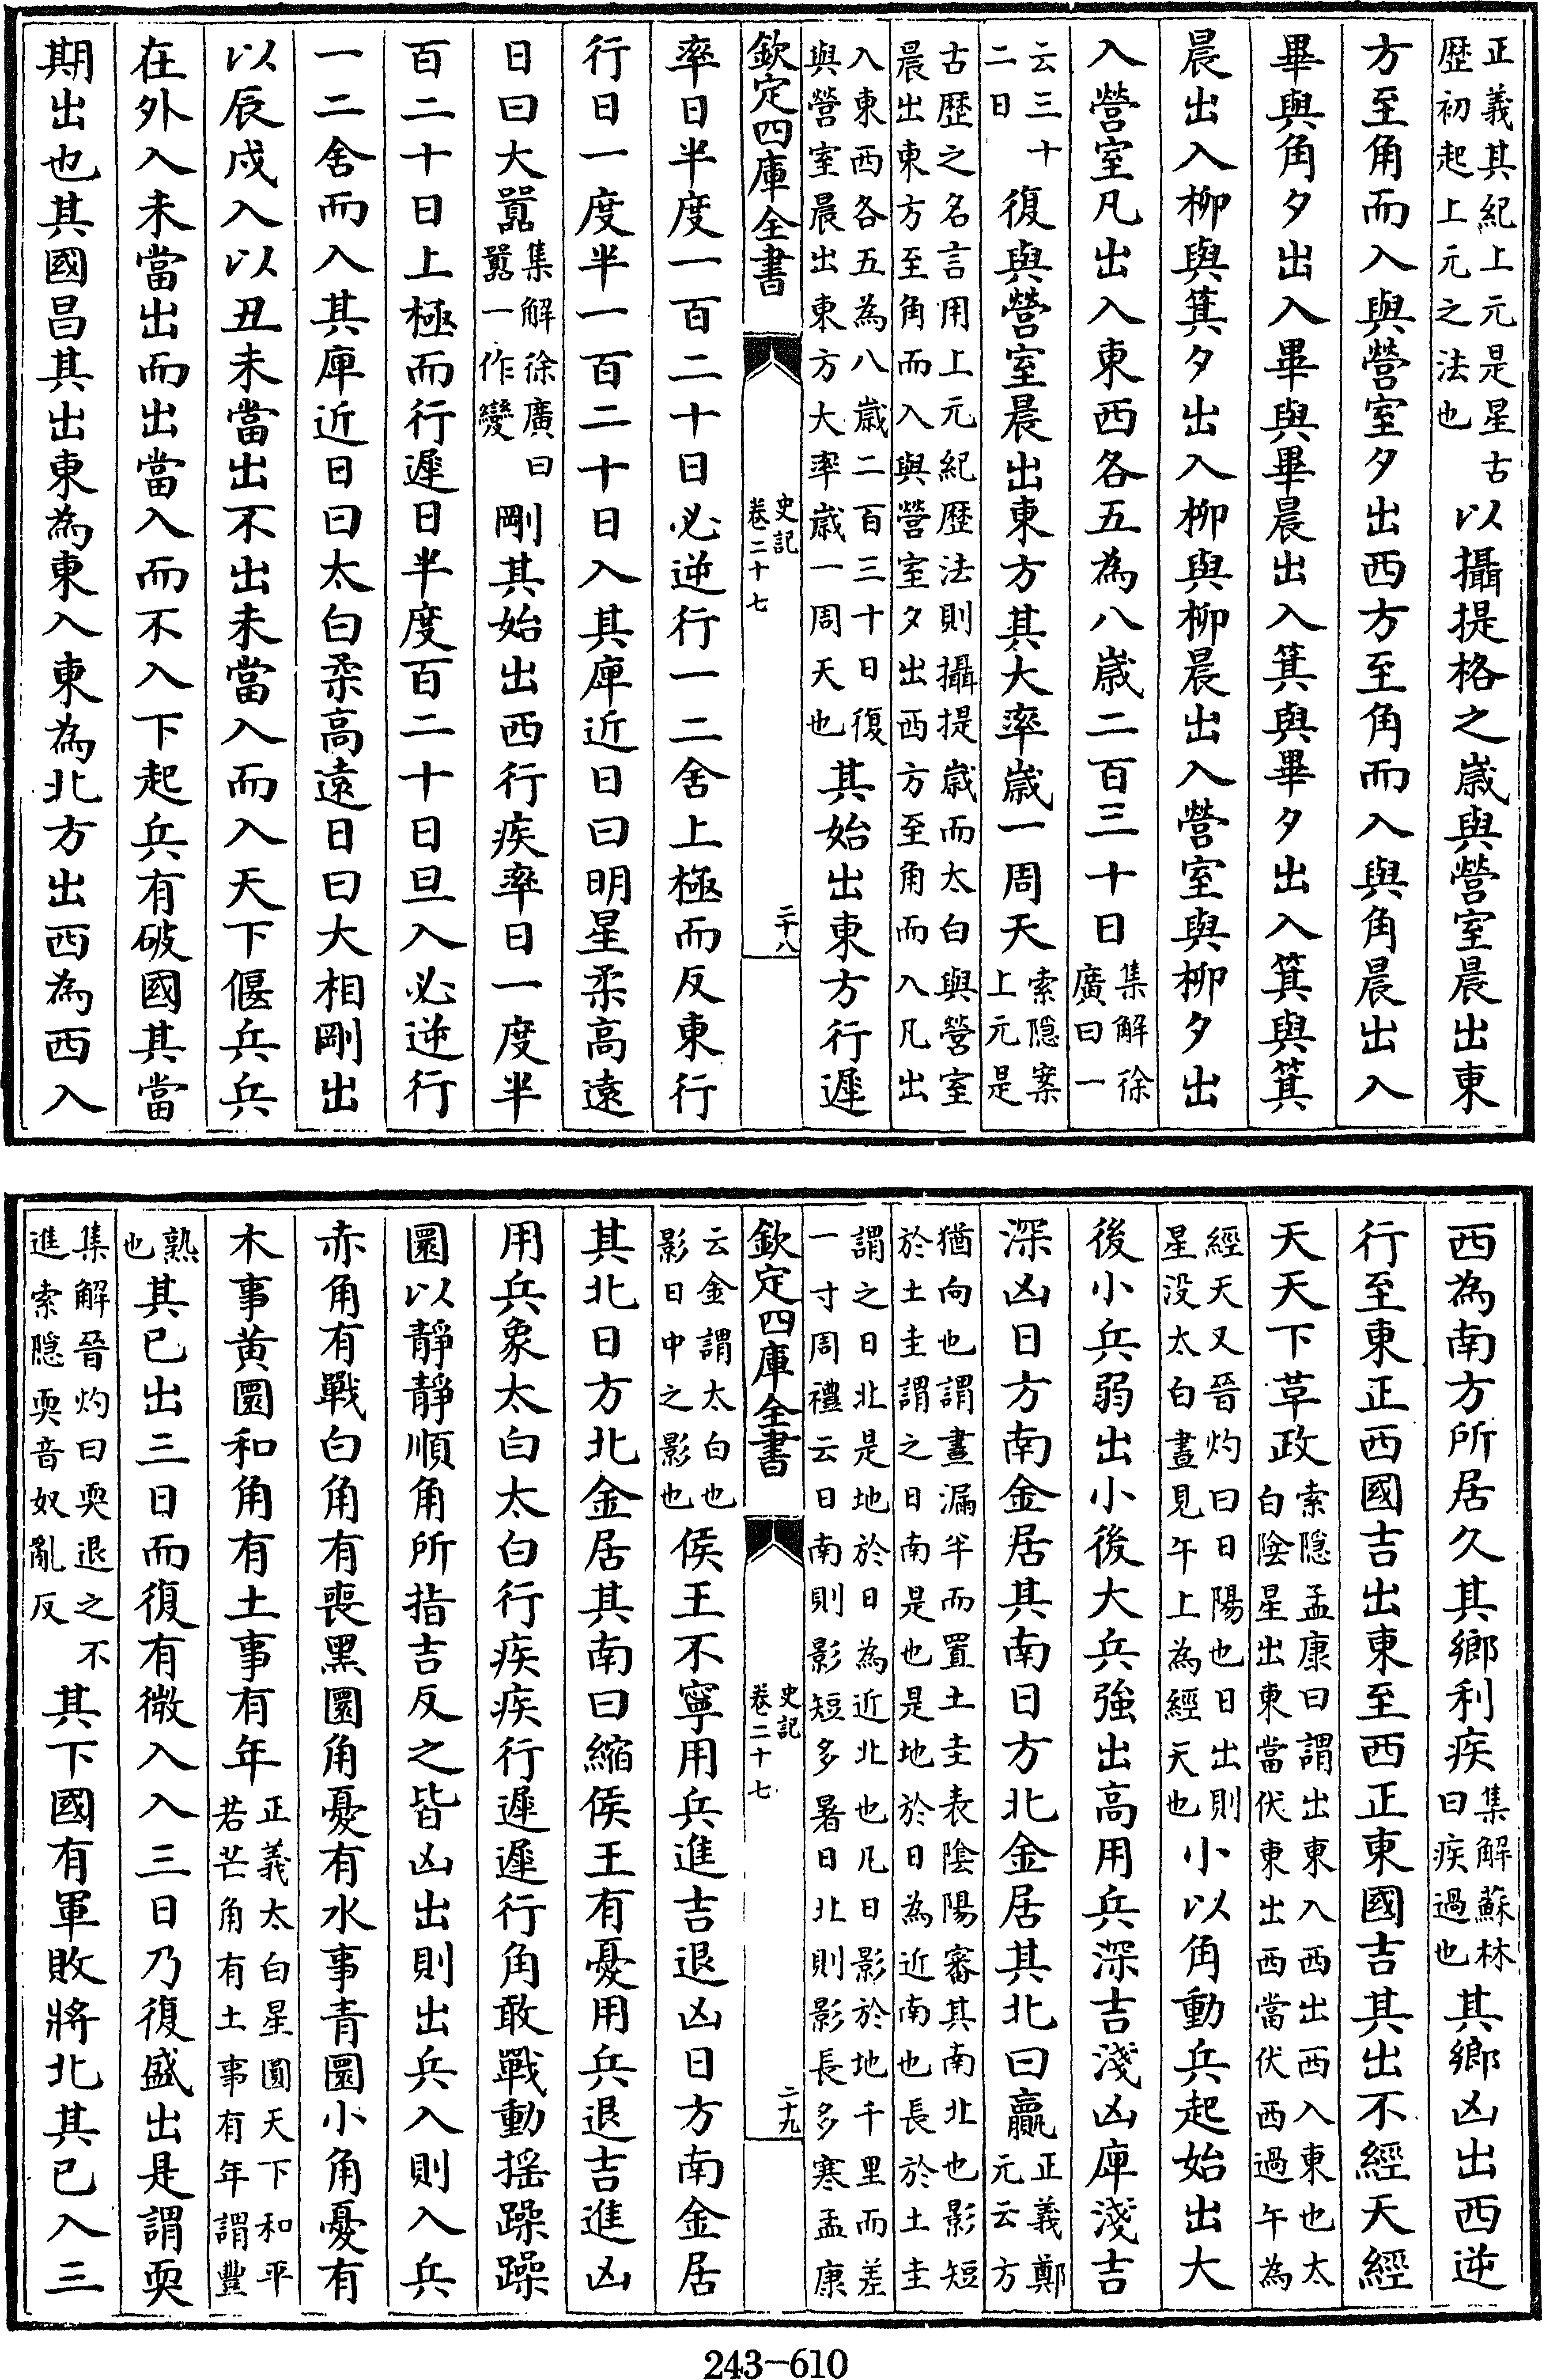 正義其紀上元是星古
歴初起上元之法也
以攝提格之歳與營室晨出東
方至角而入與營室夕出西方至角而入與角晨出入
畢與角夕出入畢與畢晨出入箕與畢夕出入箕與箕
晨出入柳與箕夕出入柳與柳晨出入營室與柳夕出
入營室凡出入東西各五為八歳二百三十日
集解徐
廣曰一
云三十
二日
復與營室晨出東方其大率歳一周天
索隠案
上元是
古歴之名言用上元紀歴法則攝提歳而太白與營室
晨出東方至角而入與營室夕出西方至角而入凡出
入東西各五為八歳二百三十日復
與營室晨出東方大率歳一周天也
其始出東方行遲
欽定四庫全書
史記
卷二十七
二十八
率日半度一百二十日必逆行一二舍上極而反東行
行日一度半一百二十日入其庳近日曰明星柔高遠
日曰大囂
集解徐廣曰
囂一作變
剛其始出西行疾率日一度半
百二十日上極而行遲日半度百二十日旦入必逆行
一二舍而入其庳近日曰太白柔高遠日曰大相剛出
以辰戌入以丑未當出不出未當入而入天下偃兵兵
在外入未當出而出當入而不入下起兵有破國其當
期出也其國昌其出東為東入東為北方出西為西入
西為南方所居久其鄉利疾
集解蘇林
曰疾過也
其鄉凶出西逆
行至東正西國吉出東至西正東國吉其出不經天經
天天下革政
索隠孟康曰謂出東入西出西入東也太
白陰星出東當伏東出西當伏西過午為
經天又晉灼曰日陽也日出則
星没太白晝見午上為經天也
小以角動兵起始出大
後小兵弱出小後大兵強出高用兵深吉淺凶庳淺吉
深凶日方南金居其南日方北金居其北曰贏
正義鄭
元云方
猶向也謂晝漏半而置土圭表陰陽審其南北也影短
於土圭謂之日南是也是地於日為近南也長於土圭
謂之日北是地於日為近北也凡日影於地千里而差
一寸周禮云日南則影短多暑日北則影長多寒孟康
欽定四庫全書
史記
卷二十七
二十九
云金謂太白也
影日中之影也
侯王不寧用兵進吉退凶日方南金居
其北日方北金居其南曰縮侯王有憂用兵退吉進凶
用兵象太白太白行疾疾行遲遲行角敢戰動揺躁躁
圜以靜靜順角所指吉反之皆凶出則出兵入則入兵
赤角有戰白角有喪黑圜角憂有水事青圜小角憂有
木事黄圜和角有土事有年
正義太白星圓天下和平
若芒角有土事有年謂豐
熟
也
其已出三日而復有微入入三日乃復盛出是謂耎
集解晉灼曰耎退之不
進索隠耎音奴亂反
其下國有軍敗將北其已入三
243-610